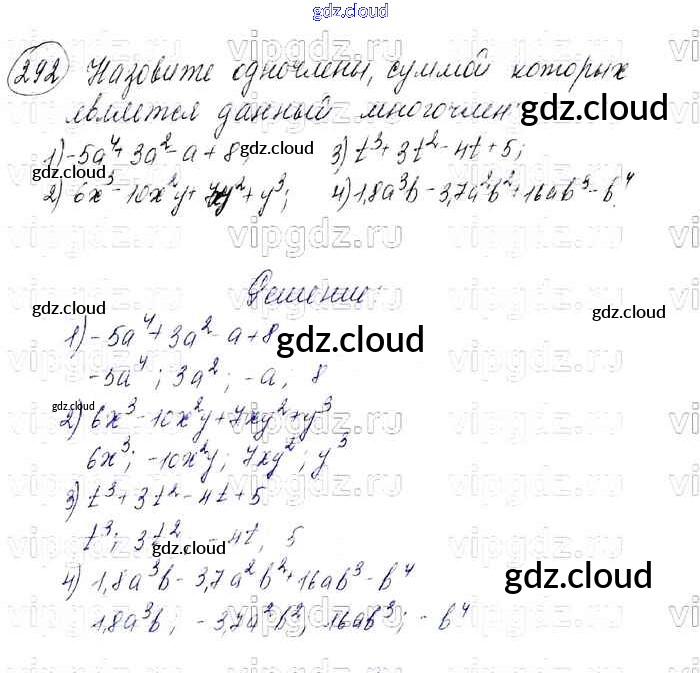 gdz.cloud
292 Назовите одночлены, суммой которых
является данный многочлен
gdz.cloud
1) -5a⁴+3a²-a+8; 3) t³+3t²-4t+5;
gdz.cloud gdz.cloud
2) 6x³-10x²y+7xy²+y³; 4) 1,8a³b-3,7a²b²+16ab³-b⁴.
Решение:
gdz.cloud gdz.cloud
1) -5a⁴+3a²-a+8
gdz.cloud
-5a⁴; 3a²; -a; 8
gdz.cloud
2) 6x³-10x²y+7xy²+y³
6x³; -10x²y; 7xy²; y³
3) t³+3t²-4t+5
t³; 3t²; -4t, 5
gdz.cloud gdz.cloud
4) 1,8a³b-3,7a²b²+16ab³-b⁴
gdz.cloud
1,8a³b; -3,7a²b²; 16ab³; -b⁴
vipgdz.ru